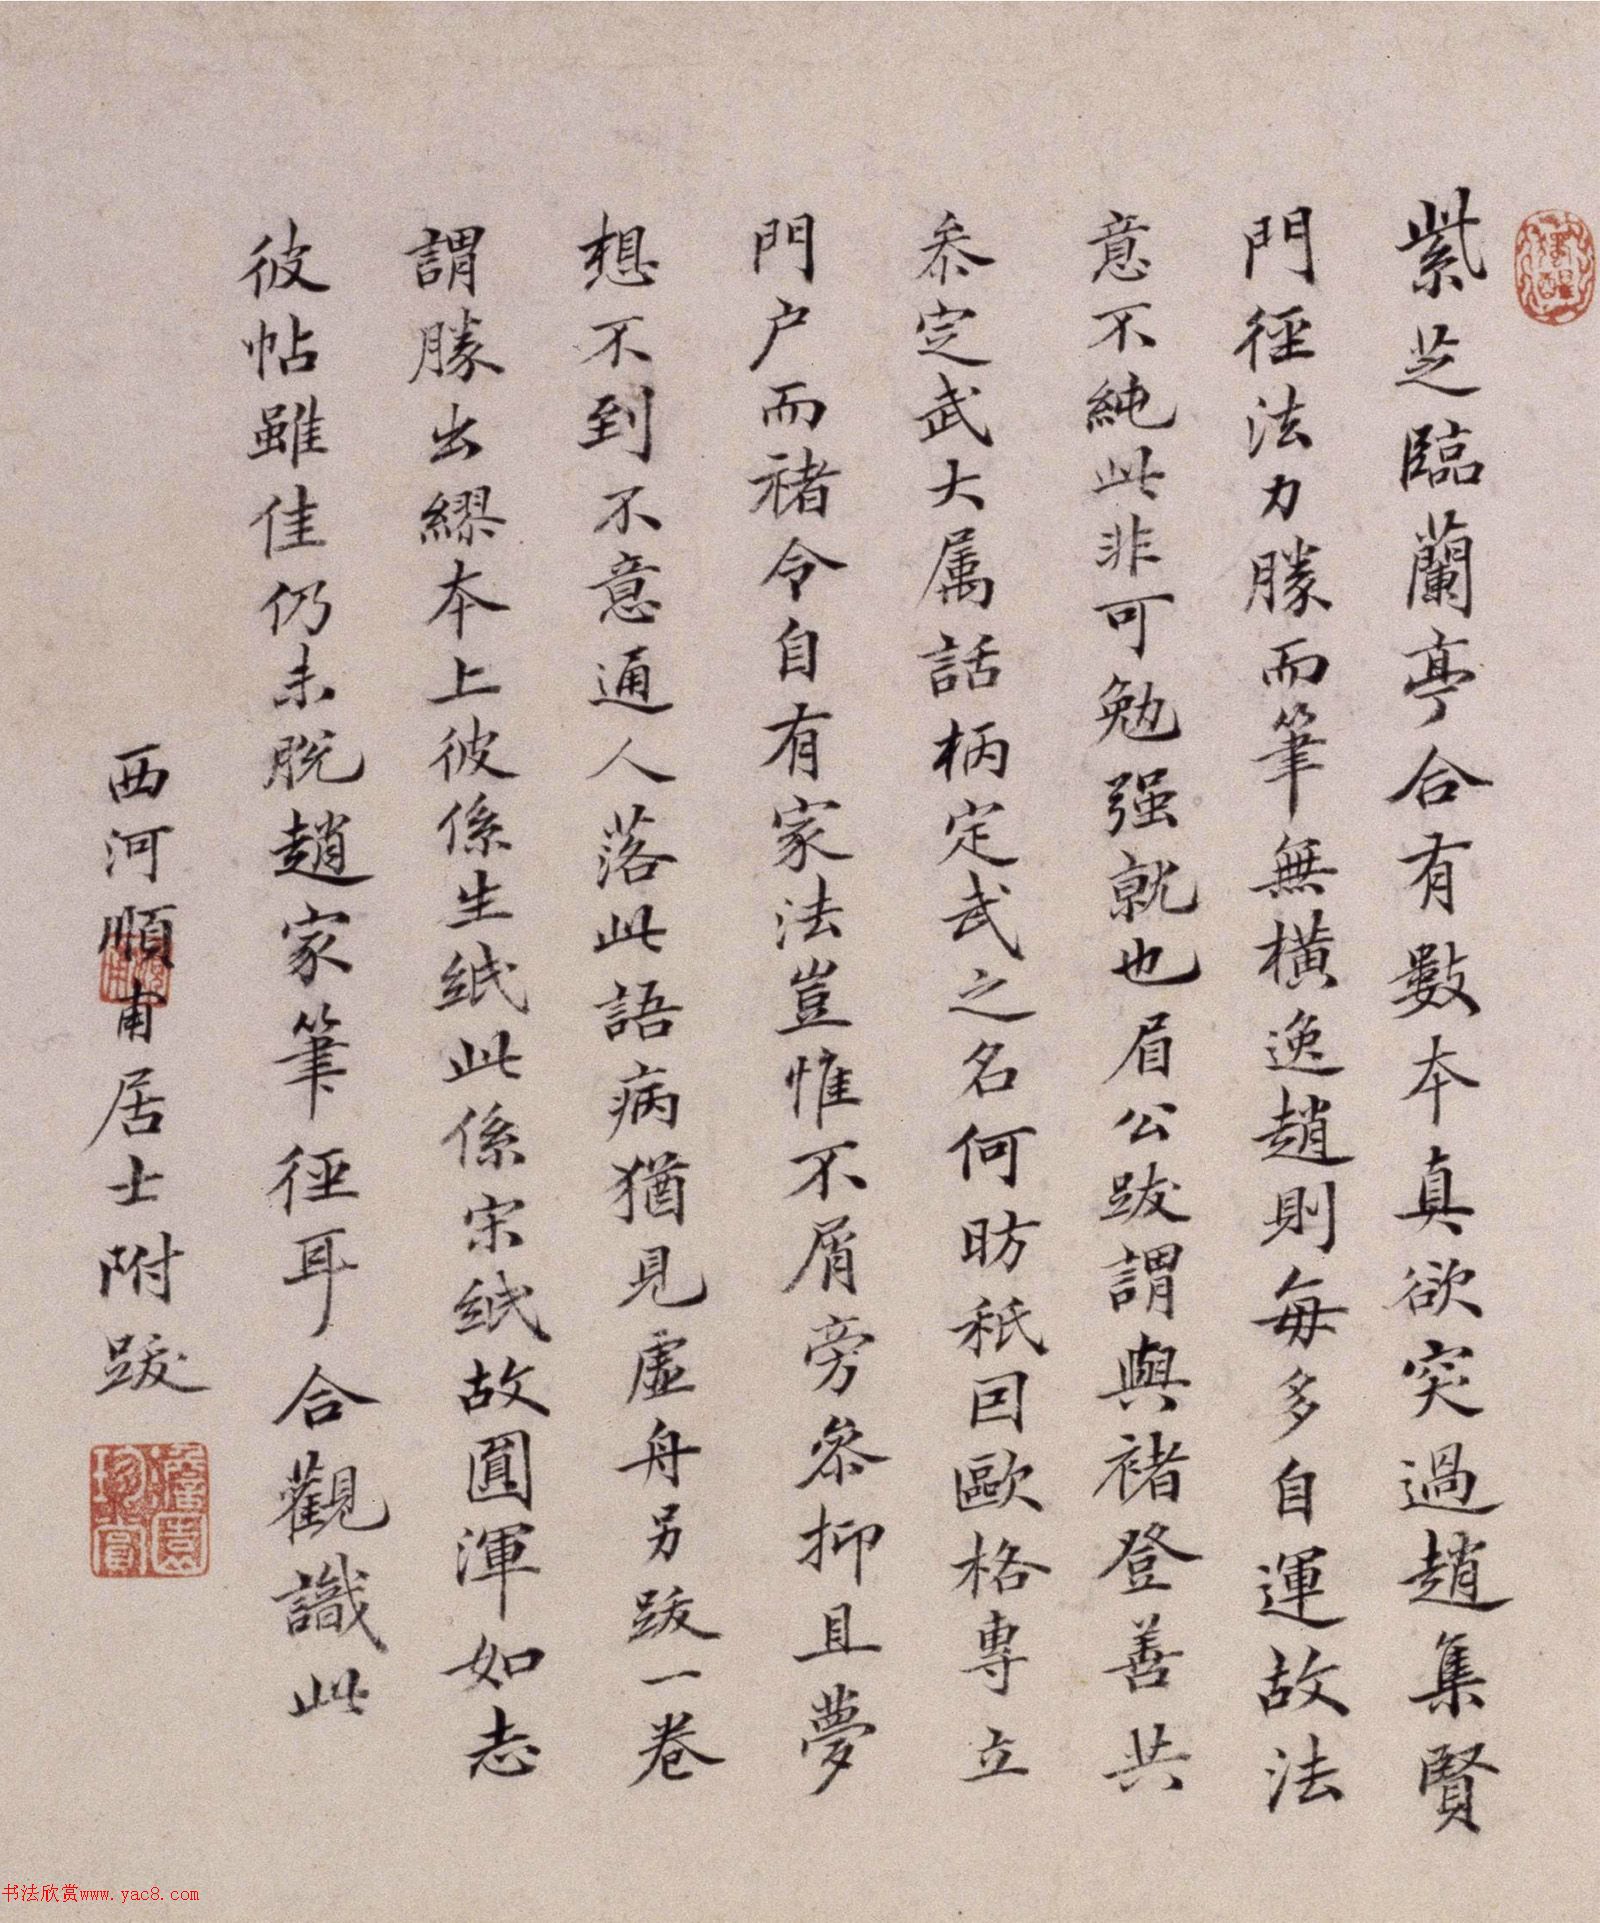 紫芝臨蘭亭合有數本真欲突過趙集賢
門徑法力勝而筆無橫逸趙則每多自運故法
意不純此非可勉强就也眉公跋謂與褚登善共
叅定武大属話柄定武之名何昉秖因歐格專立
門户而褚令自有家法豈惟不屑旁叅抑且夢
想不到不意通人落此語病猶見虛舟另跋一卷
謂勝出繆本上彼係生紙此係宋紙故圓渾如志
彼帖雖佳仍未脱趙家筆徑耳合觀識此
西河順甫居士附跋
书法欣赏www.yac8.com